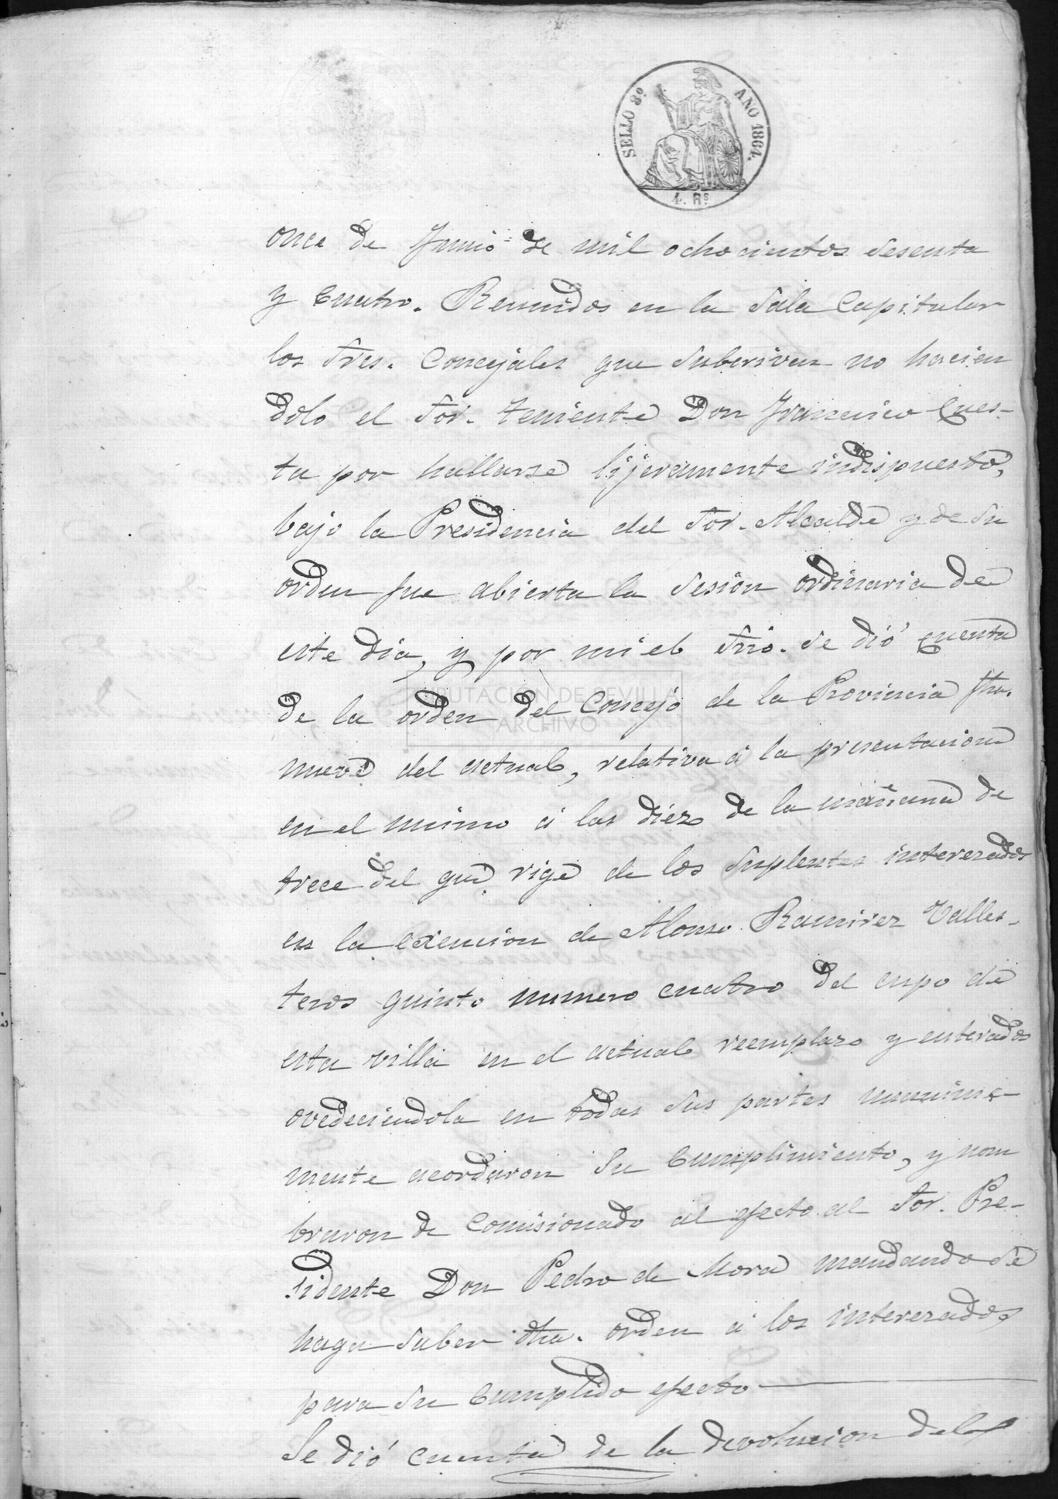 SELLO 8º AÑO 1864.
4. Rˢ
once de Junio de mil ochocientos sesenta
y Cuatro. Reunidos en la Sala Capitular
los Sres. Concejales que Subcriven no hacien
dolo el Sor. teniente Don Francisco Cues-
ta por hallarse lijeramente indispuesto,
bajo la Presidencia del Sor. Alcalde y de su
orden fue abierta la Sesion ordinaria de
este dia, y por mi el Srio. se dió cuenta
DIPUTACION DE SEVILLA
ARCHIVO
de la orden del Concejo de la Provincia fha.
nueve del actual, relativa á la presentacion
en el mismo á las diez de la mañana de
trece del que rige de los Suplentes interezados
en la exencion de Alonso Ramirez Valles-
teros quinto numero cuatro del cupo de
esta villa en el actual reemplazo y enterados
ovedeciendola en todas sus partes unanime-
mente acordaron su Cumplimiento, y nom
braron de Comisionado al efecto al Sor. Pre-
sidente Don Pedro de Mora mandando se
haga saber dha. orden á los interezados
para su Cumplido efecto
Se dió cuenta de la devolucion del